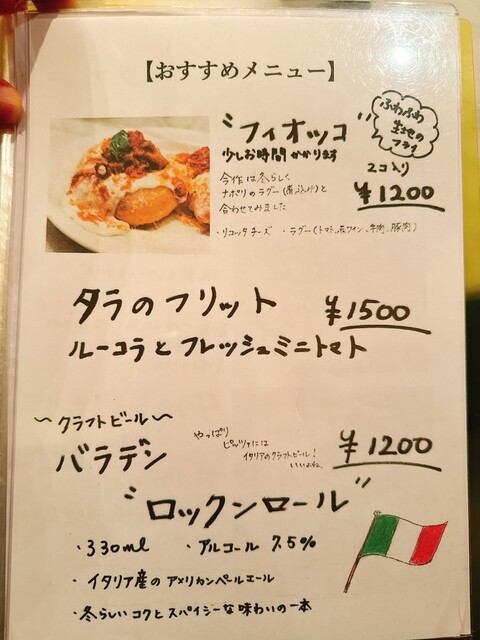 【おすすめメニュー】
"フィオッコ"
ふわふわ
生地の
フライ
少しお時間かかります
2コ入り
¥1200
今作は冬らしく
ナポリのラグー(煮込み)と
合わせてみました
・リコッタチーズ ・ラグー(トマト、赤ワイン、牛肉、豚肉)
タラのフリット ¥1500
ルーコラとフレッシュミニトマト
〜クラフトビール〜
バラデン
やっぱり
ピッツァには
イタリアのクラフトビール!
いいよね。
¥1200
"ロックンロール"
・330ml ・アルコール 7.5%
・イタリア産のアメリカンペールエール
・冬らしいコクとスパイシーな味わいの一本